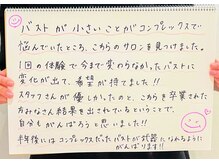 バストが小さいことがコンプレックスで
悩んでいたところ、こちらのサロンを見つけました。
1回の体験で今まで変わらなかったバストに
変化が出て、希望が持てました!!
スタッフさんが優しかったのと、こちらを卒業された
方みなさん結果を出されているということで、
自分もがんばろうと思いました!!
半年後にはコンプレックスだったバストが武器になれるように
がんばります!!